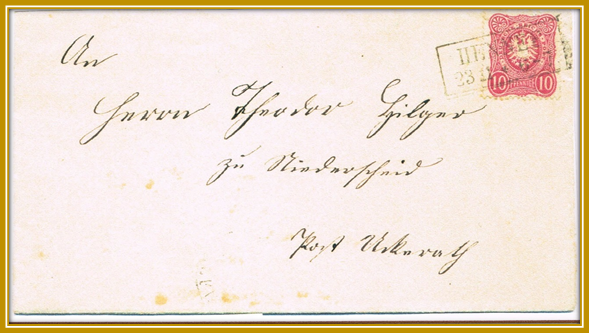 An
Herrn Theodor Hilger
zu Niederscheid
Post Uckerath
10 10